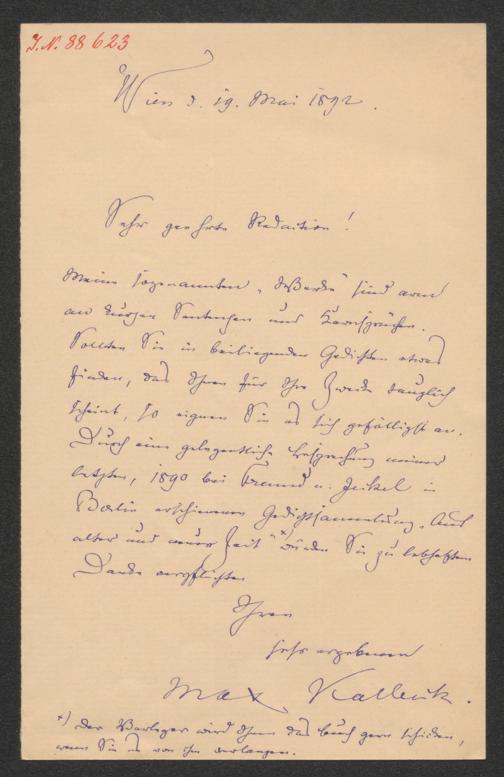 I.N. 88623
Wien d. 19. Mai 1892.
Sehr geehrte Redaction!
Meine sogenannten „Werke" sind arm
an kurzen Sentenzen und Kernsprüchen.
Sollten Sie in beiliegenden Gedichten etwas
finden, das Ihnen für Ihre Zwecke tauglich
scheint, so eignen Sie es sich gefälligst an.
Durch eine gelegentliche Besprechung meiner
letzten, 1890 bei Freund u. Jeckel in
Berlin erschienenen Gedichtsammlung „Aus
alter und neuer Zeit" *) würden Sie zu lebhaftem
Danke verpflichten
Ihren
sehr ergebenen
Max Kalbeck.
*) Der Verleger wird Ihnen das Buch gern schicken,
wenn Sie es von ihm verlangen.